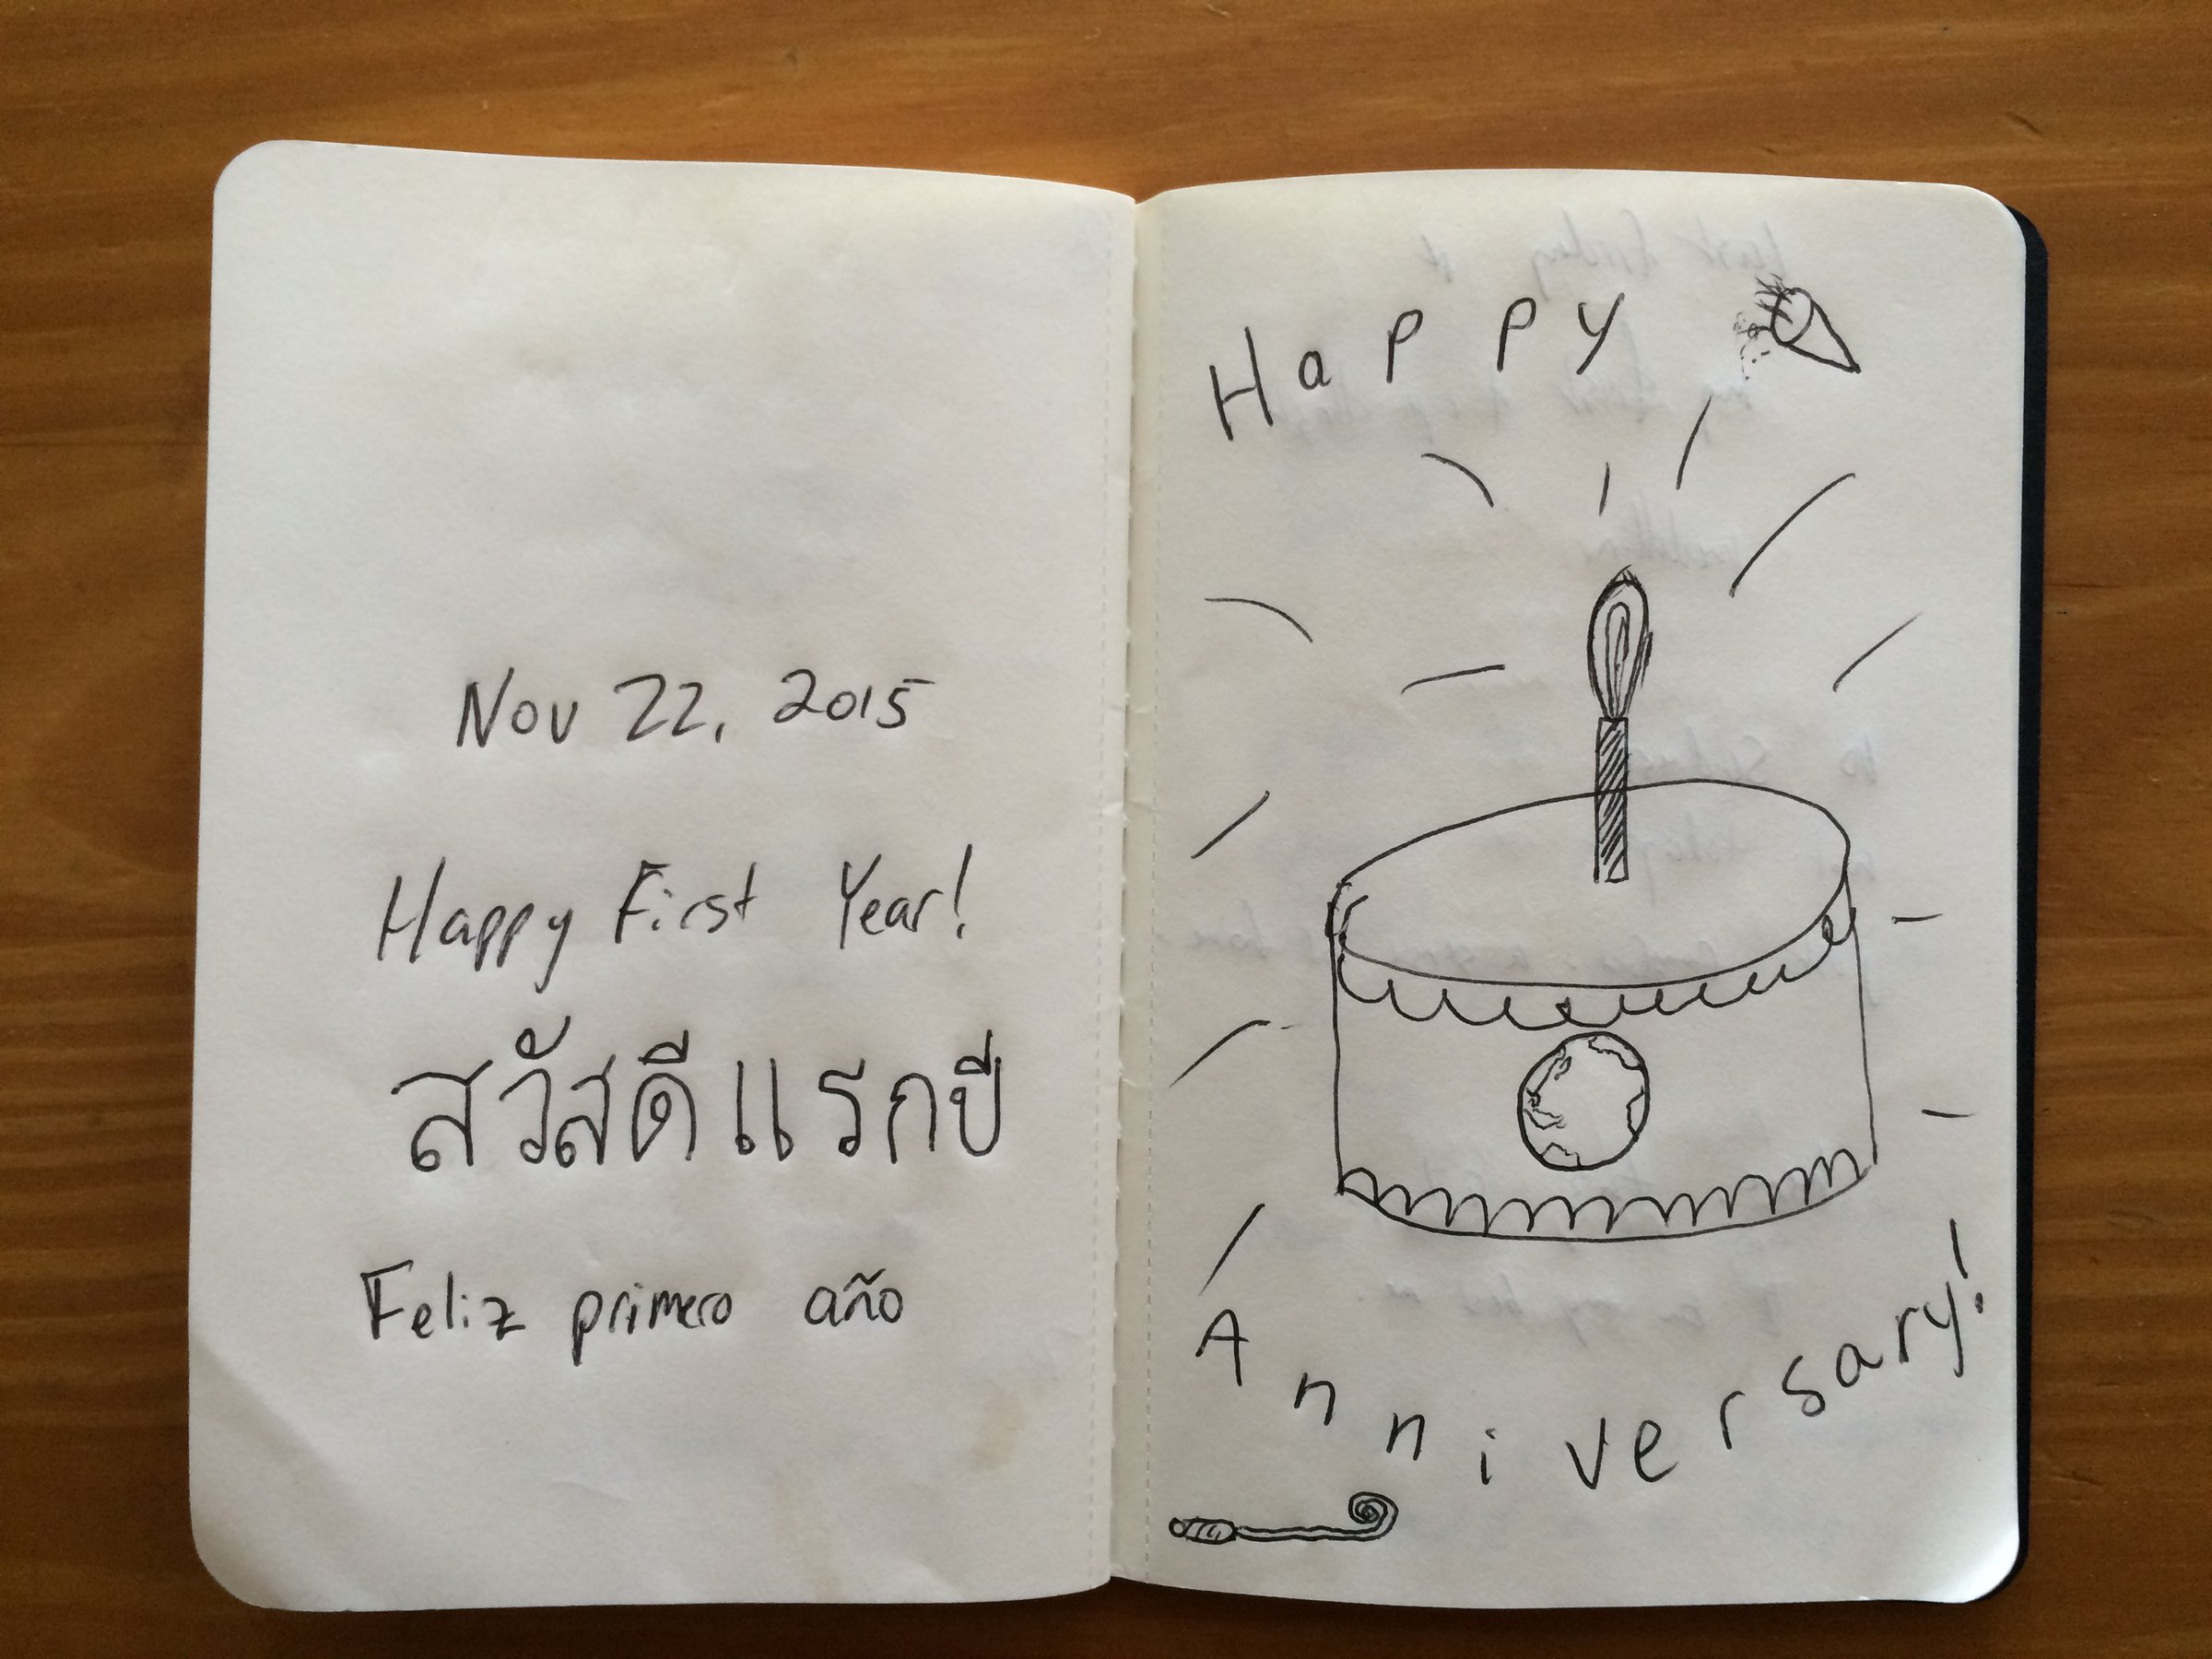 Nov 22, 2015
Happy First Year!
สวัสดีแรกปี
Feliz primero año
Happy
Anniversary!